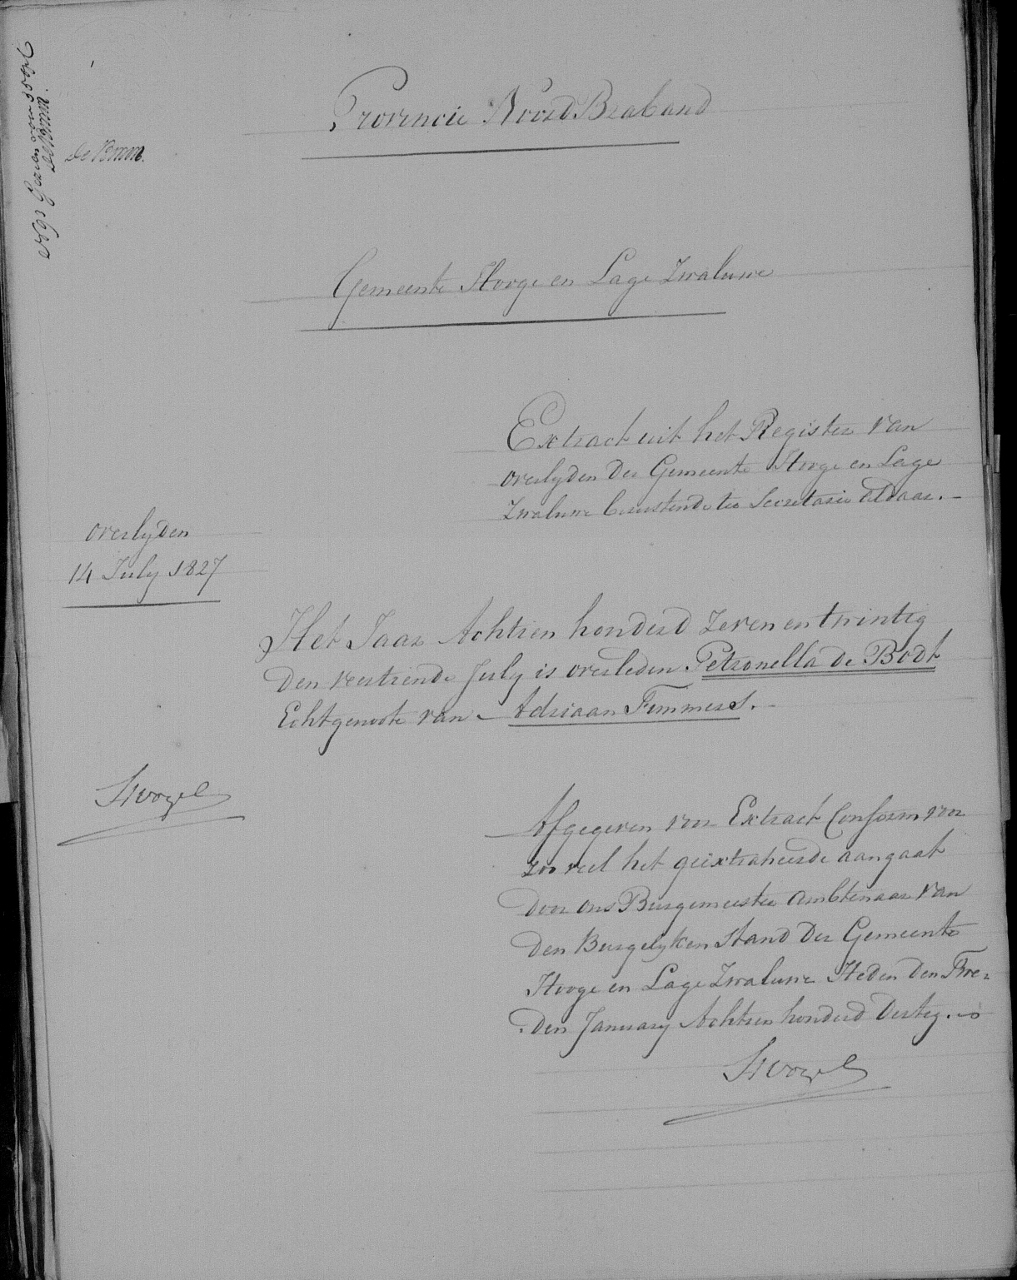 Provincie Noord Braband
de Bruin.
Gemeente Hooge en Lage Zwaluwe
Extract uit het Register van
overlyden der Gemeente Hooge en Lage
Zwaluwe berustende ter Secretarie aldaar.—
overlyden
14 July 1827
Het Jaar Achtien honderd zeven en twintig
den veertiende July is overleden Petronella de Bodt
Echtgenoote van – Adriaan Timmers.—
Afgegeven voor Extract Conform voor
zoo veel het geëxtraheerde aangaat
door ons Burgemeester Ambtenaar van
den Burgelyken Stand der Gemeente
Hooge en Lage Zwaluwe Heden den Twe=
den January Achtien honderd dertig.